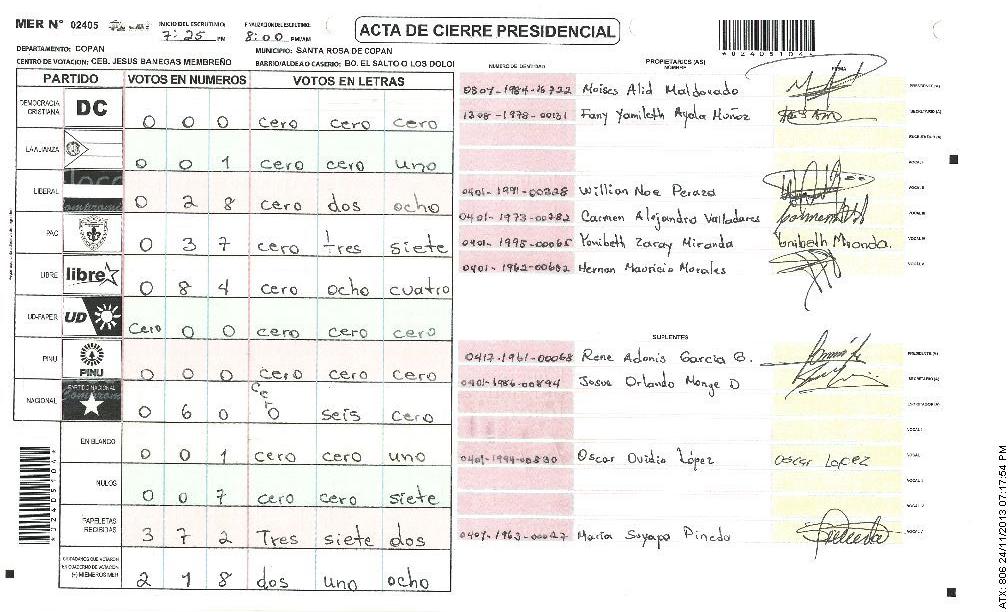 MER N° 02405 INICIO DEL ESCRUTINIO: 7:25 PM FINALIZACION DEL ESCRUTINIO: 8:00 PM/AM
ACTA DE CIERRE PRESIDENCIAL
DEPARTAMENTO: COPAN MUNICIPIO: SANTA ROSA DE COPAN
CENTRO DE VOTACION: CEB. JESUS BANEGAS MEMBREÑO BARRIO/ALDEA O CASERIO: BO. EL SALTO O LOS DOLOI
PARTIDO VOTOS EN NUMEROS VOTOS EN LETRAS
DEMOCRACIA CRISTIANA DC 0 0 0 cero cero cero
LA ALIANZA 0 0 1 cero cero uno
LIBERAL 0 2 8 cero dos ocho
PAC 0 3 7 cero tres siete
LIBRE libre 0 8 4 cero ocho cuatro
UD-FAPER UD Cero 0 0 cero cero cero
PINU PINU 0 0 0 cero cero cero
NACIONAL PARTIDO NACIONAL 0 6 0 cero seis cero
EN BLANCO 0 0 1 cero cero uno
NULOS 0 0 7 cero cero siete
PAPELETAS RECIBIDAS 3 7 2 Tres siete dos
CIUDADANOS QUE VOTARON EN CUADERNO DE VOTACION (+) MIEMBROS MER 2 1 8 dos uno ocho
NUMERO DE IDENTIDAD PROPIETARIOS (AS) NOMBRE FIRMA
0807-1984-16722 Moises Alid Maldonado PRESIDENTE (A)
1308-1978-00131 Fany Yamileth Ayala Muñoz SECRETARIO (A)
ESCRUTADOR (A)
VOCAL I
0401-1991-00328 Willian Noe Peraza VOCAL II
0401-1973-00782 Carmen Alejandro Valladares VOCAL III
0401-1995-00065 Yonibeth Zaray Miranda Yonibeth Miranda. VOCAL IV
0401-1962-00632 Hernan Mauricio Morales VOCAL V
SUPLENTES
0417-1961-00068 Rene Adonis Garcia G. PRESIDENTE (A)
0401-1986-00894 Josue Orlando Monge D SECRETARIO (A)
ESCRUTADOR (A)
VOCAL I
0401-1994-00830 Oscar Ovidio López oscar Lopez
0407-1963-00027 Maria Suyapa Pinedo
*02405104*
ATX: 806 24/11/2013 07:17:54 PM